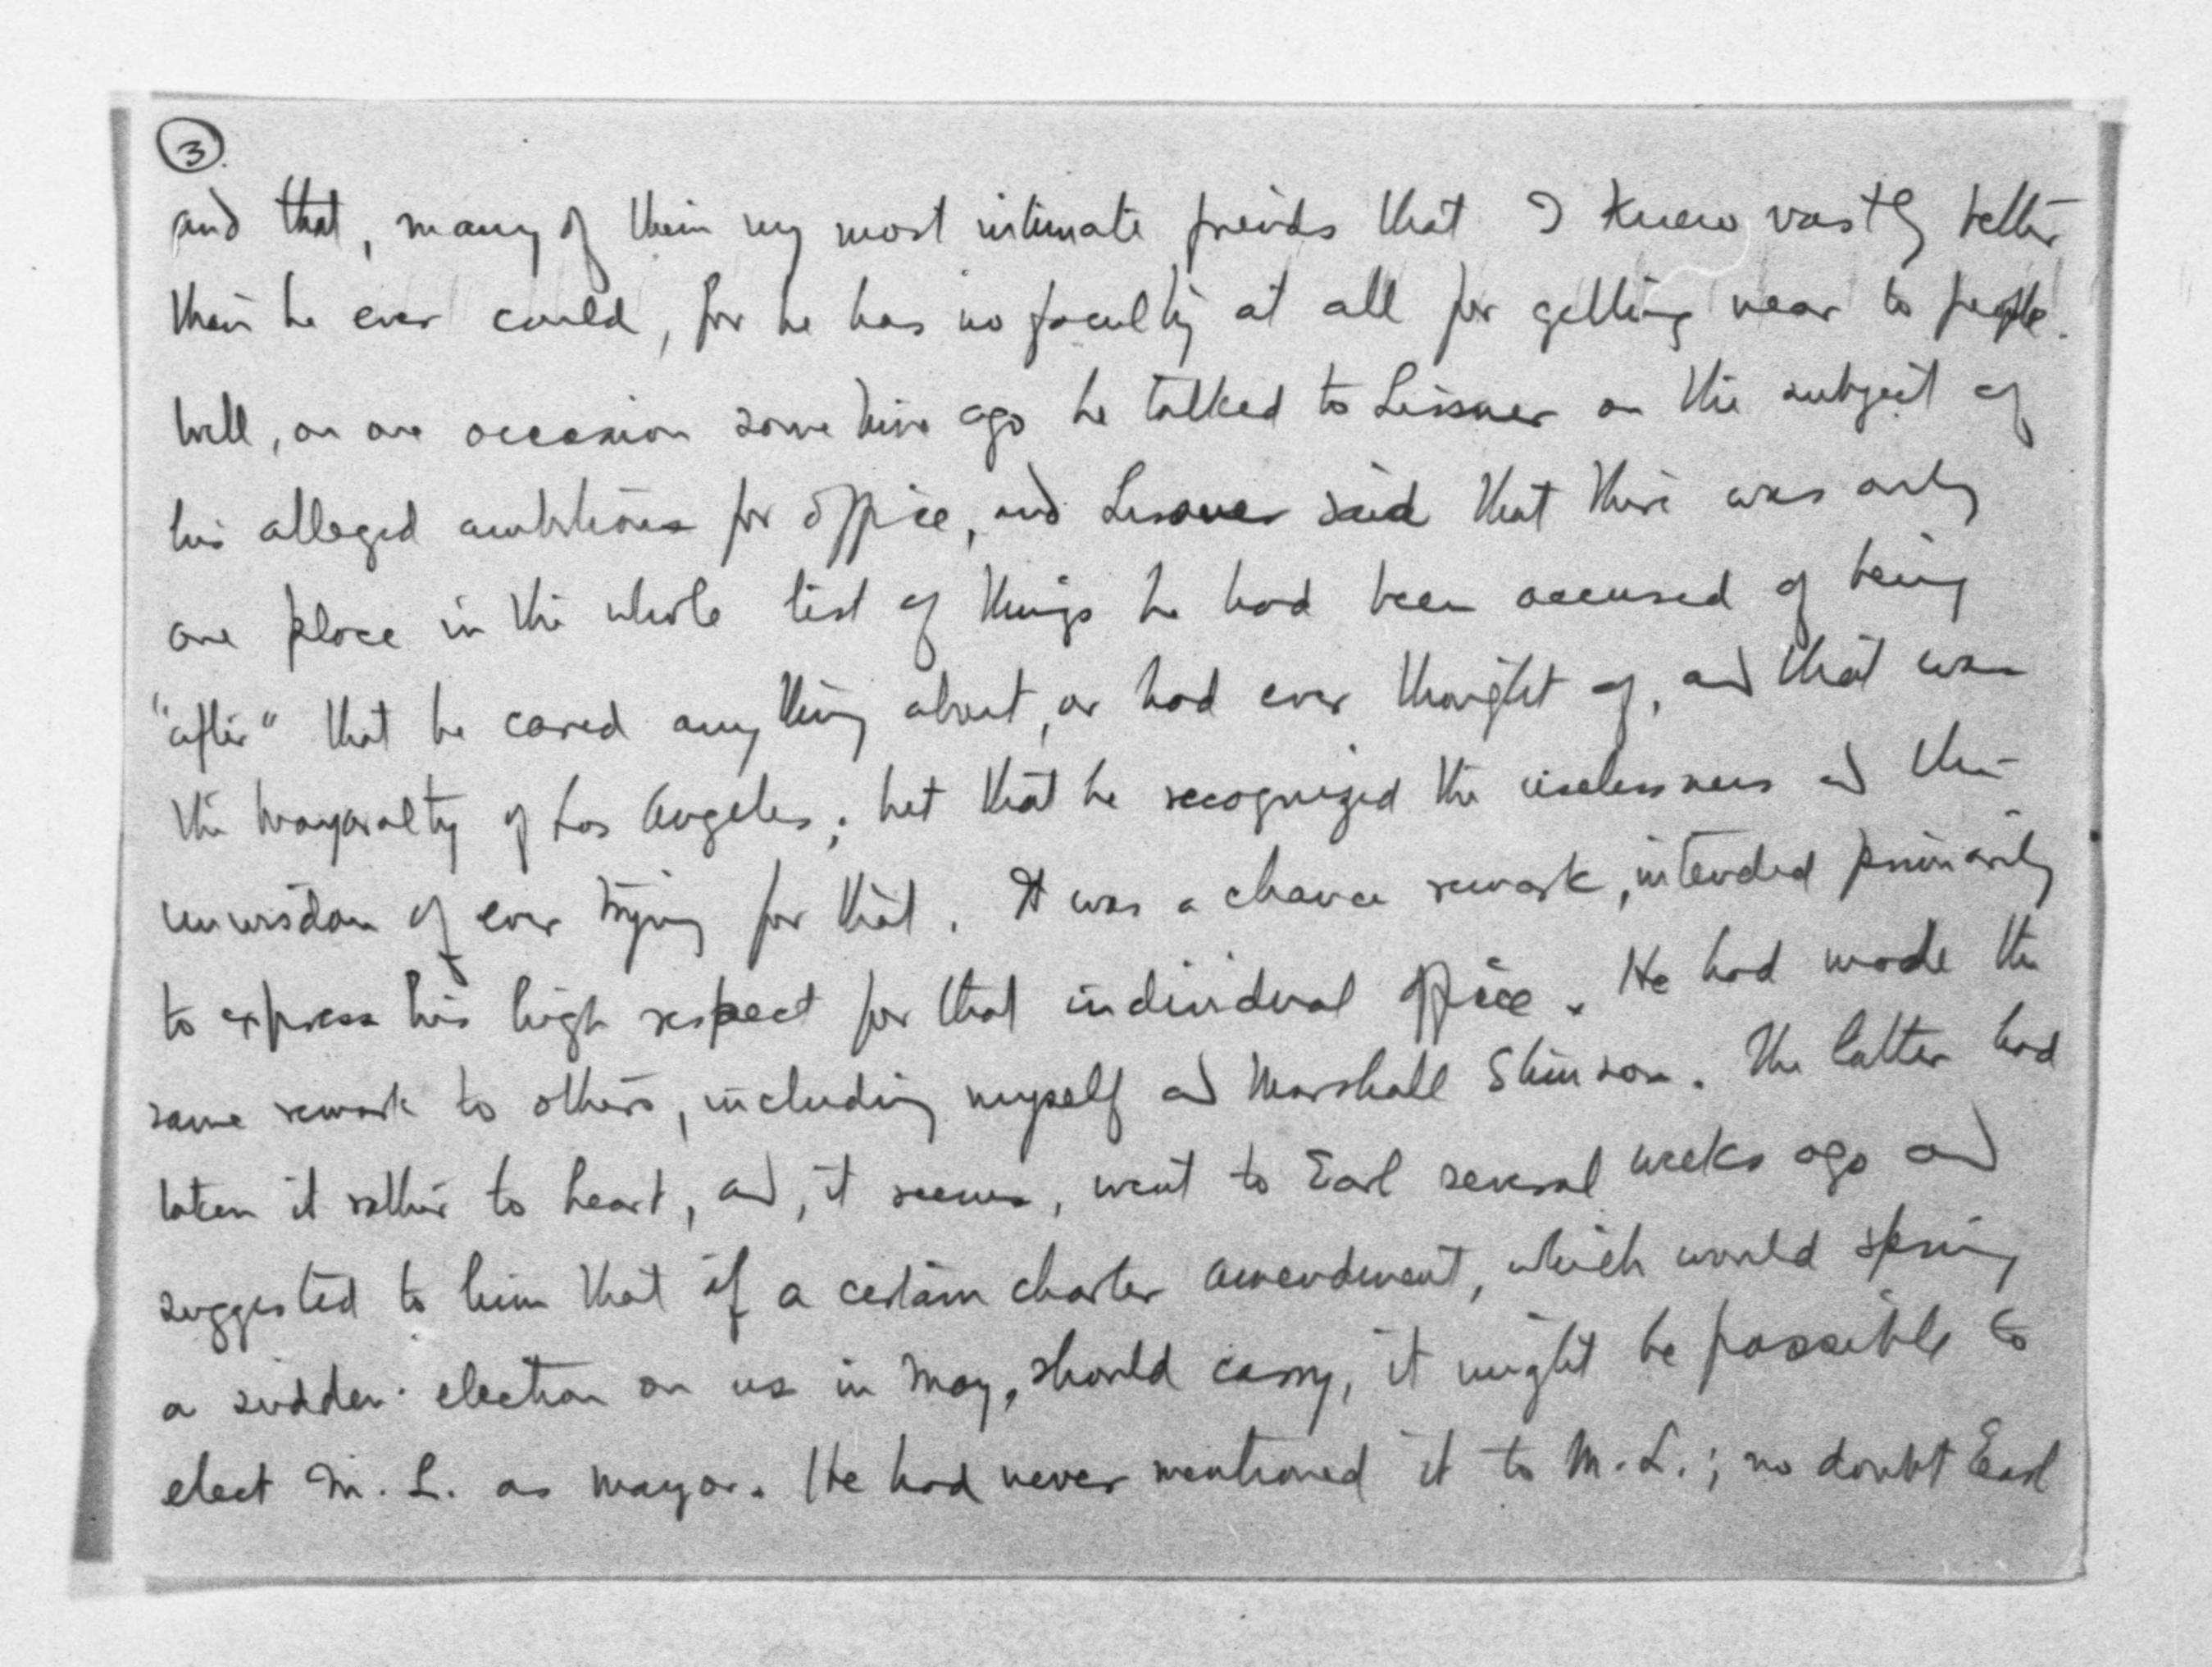 3.
and that, many of them my most intimate friends that I knew vastly better
than he ever could, for he has no faculty at all for getting near to people.
Well, on one occasion some time ago he talked to Lissner on the subject of
his alleged ambitions for office, and Lissner said that there was only
one place in the whole list of things he had been accused of being
"after" that he cared anything about, or had ever thought of, and that was
the mayoralty of Los Angeles; but that he recognized the uselessness and the
unwisdom of ever trying for that. It was a chance remark, intended primarily
to express his high respect for that individual office. He had made the
same remark to others, including myself and Marshall Stimson. The latter had
taken it rather to heart, and, it seems, went to Earl several weeks ago and
suggested to him that if a certain charter amendment, which would spring
a sudden election on us in May, should carry, it might be possible to
elect M. L. as mayor. He had never mentioned it to M. L.; no doubt Earl